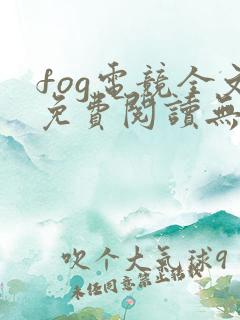 fog電競全文
免費閱讀無
吹个大氣球9
未任同意禁止轉載